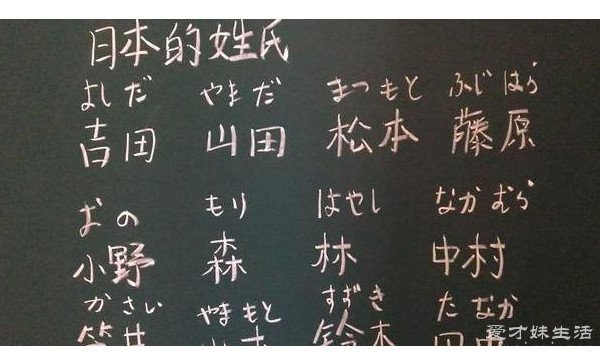 日本的姓氏
よしだ やまだ まつもと ふじはら
吉田 山田 松本 藤原
おの もり はやし なかむら
小野 森 林 中村
かさい やまもと すずき たなか
笠井 山本 鈴木 田中
爱才妹生活